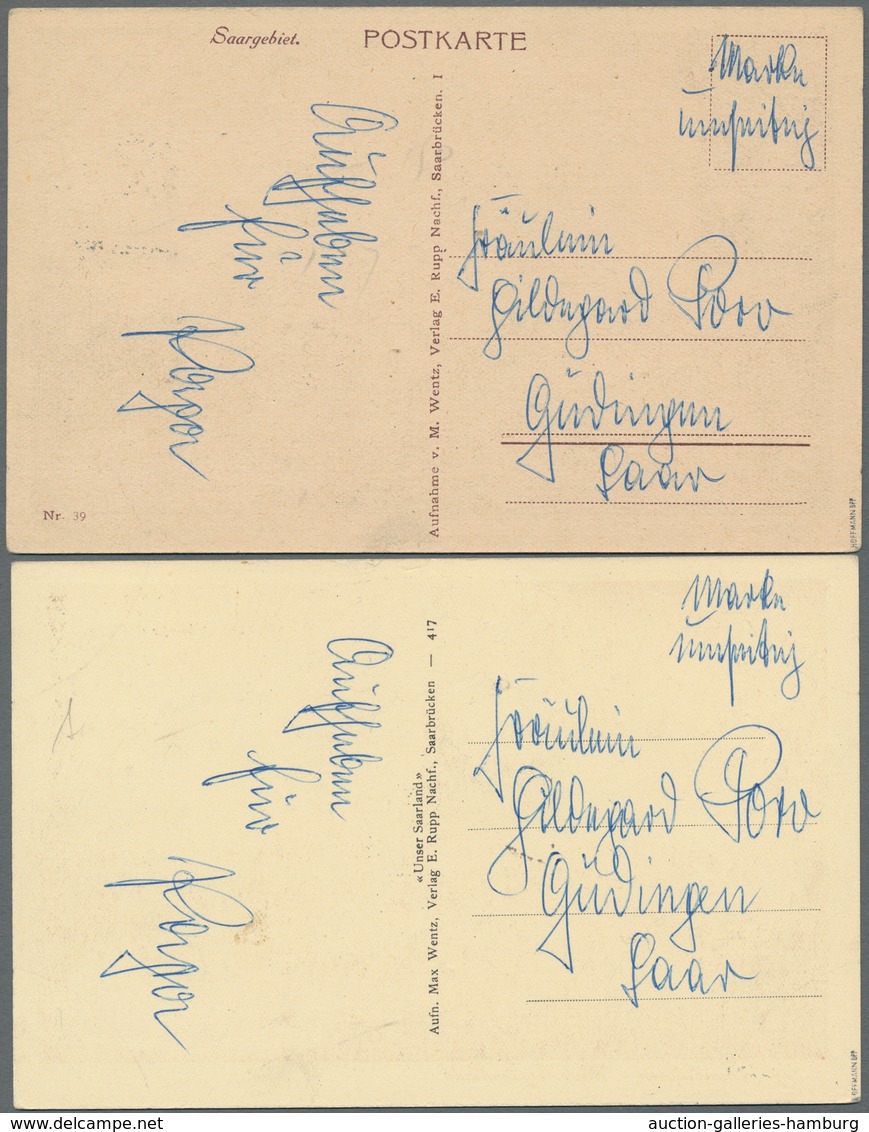 Saargebiet. POSTKARTE
Marke
umseitig
Aufheben
für
Aufnahme v. M. Wentz, Verlag E. Rupp Nachf., Saarbrücken. I
Fräulein
Hildegard
Güdingen
Saar
Nr. 39
HOFFMANN BPP
Marke
umseitig
Aufheben
für
«Unser Saarland»
Aufn. Max Wentz, Verlag E. Rupp Nachf., Saarbrücken — 417
Fräulein
Hildegard
Güdingen
Saar
HOFFMANN BPP
auction-galleries-hamburg